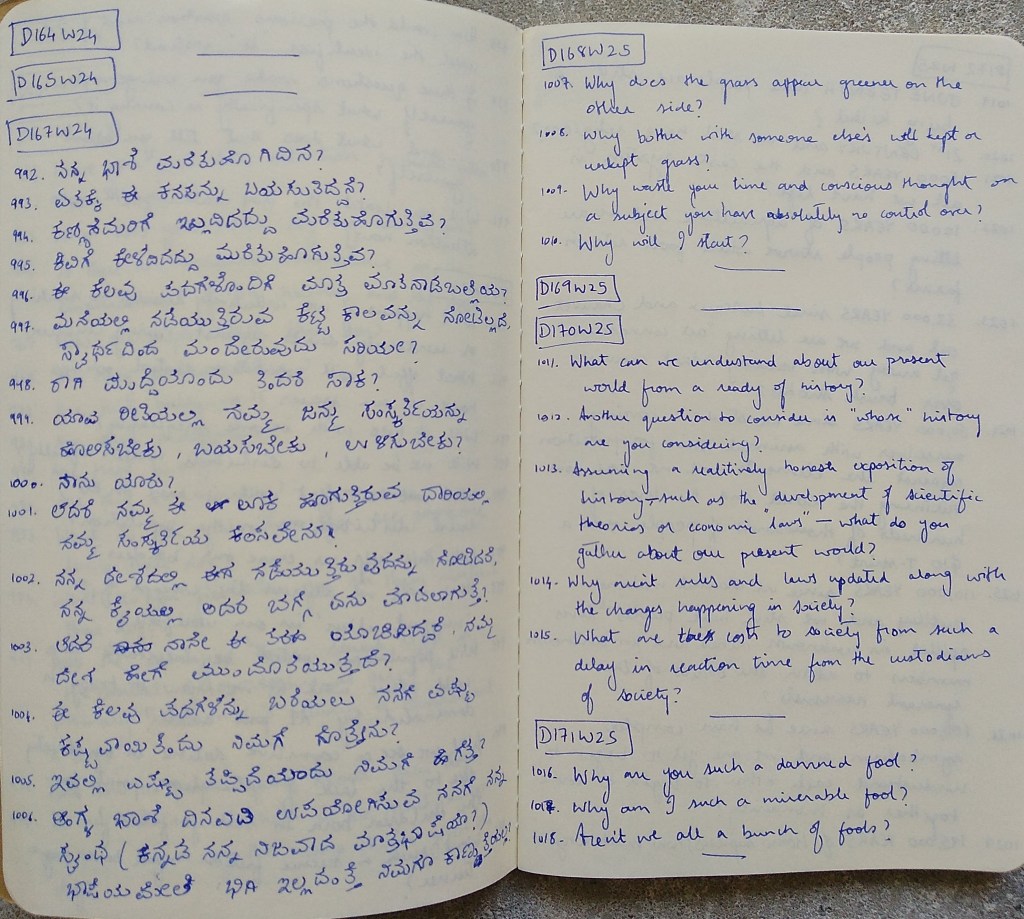 D164W24
D165W24
D167W24
992. ನನ್ನ ಭಾಶೆ ಮರೆತುಹೊಗಿದಿನ?
993. ಏತಕ್ಕೆ ಈ ಕನಸನ್ನು ಬಯಸುತಿದ್ದನೆ?
994. ಇಲ್ಲದಿದದ್ದು ಮರೆತುಹೊಗುತ್ತಿವ?
995. ಕಿವಿಗೆ ಕೇಳದಿದದ್ದು ಮರೆತುಹೊಗುತ್ತೆವ?
996. ಈ ಕೆಲವು ಪದಗಳೊಂದಿಗೆ ಮಾತ್ರ ಮಾತನಾಡಬಲ್ಲೆಯ?
997. ಮನೆಯಲ್ಲಿ ನಡೆಯುತ್ತಿರುವ ಕೆಟ್ಟ ಕಾಲವನ್ನು
ಸ್ವಾರ್ಥದಿಂದ ಮಂದೇರುವುದು ಸರಿಯೇ?
998. ರಾಗಿ ಮುದ್ದೆಯೊಂದು ತಿಂದರೆ ಸಾಕ?
999. ಯಾವ ರೀತಿಯಲ್ಲಿ ನಮ್ಮ ಜನ್ಮ ಸಂಸ್ಕೃತಿಯನ್ನು
ಹೊಲಿಸಬೇಕು, ಬಯಸಬೇಕು, ಉಳಿಸುಬೇಕು?
1000. ನಾನು ಯಾರು?
1001. ಆದರೆ ನಮ್ಮ ಈ ಲೂಕ ಹೊಗುತ್ತಿರುವ ದಾರಿಯಲ್ಲಿ
ನಮ್ಮ ಸಂಸ್ಕೃತಿಯ
1002. ನನ್ನ ದೇಶದಲ್ಲಿ ಈಗ ನಡೆಯುತ್ತಿರುವುದನ್ನು ನೋಡಿದರೆ,
ನನ್ನ ಕೈಯಲ್ಲಿ ಅದರ ಬಗ್ಗೆ ಏನು ಮಾಡಲಾಗುತ್ತೆ?
1003. ಆದರೆ ನಾನೇ ಈ ತರಹ ಯೋಚಿಸಿದ್ದರೆ, ನಮ್ಮ
ದೇಶ ಹೇಗೆ ಮುಂದೊರೆಯುತ್ತದೆ?
1004. ಈ ಕೆಲವು ಪದಗಳನ್ನು ಬರೆಯಲು ನನಗೆ ಎಷ್ಟು
ಕಷ್ಟವಾಯಿತೆಂದು ನಿಮಗೆ ಗೊತ್ತೇನು?
1005. ಇವಲ್ಲಿ ಎಷ್ಟು ತಪ್ಪಿದೆಯೆಂದು ನಿಮಗೆ
1006. ಆಂಗ್ಲ ಭಾಶೆ ದಿನವಿಡಿ ಉಪಯೋಗಿಸುವ ನನಗೆ ನನ್ನ
ಸ್ವಂಥ (ಕನ್ನಡ ನನ್ನ ನಿಜವಾದ ಮಾತೃಭಾಷೆಯಾ?)
ಭಾಷೆಯಮೇಲೆ ಇಲ್ಲದಂತೆ ನಿಮಗೂ
D168W25
1007. Why does the grass appear greener on the
other side?
1008. Why bother with someone else's well kept or
unkept grass?
1009. Why waste your time and conscious thought on
a subject you have absolutely no control over?
1010. Why will I start?
D169W25
D170W25
1011. What can we understand about our present
world from a ready of history?
1012. Another question to consider is "whose" history
are you considering?
1013. Assuming a realitively honest exposition of
history—such as the development of scientific
theories or economic "laws"—what do you
gather about our present world?
1014. Why arent rules and laws updated along with
the changes happening in society?
1015. What are costs to society from such a
delay in reaction time from the custodians
of society?
D171W25
1016. Why are you such a damned fool?
1017. Why am I such a miserable fool?
1018. Aren't we all a bunch of fools?